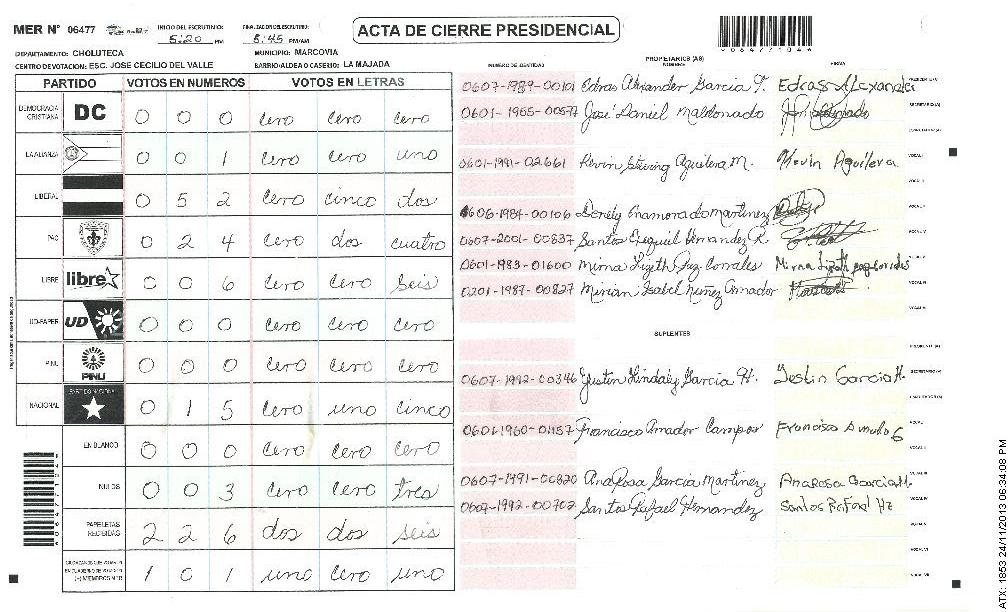 MER N° 06477
INICIO DEL ESCRUTINIO: 5:20 PM
FINALIZACION DEL ESCRUTINIO: 8:45 PM/AM
ACTA DE CIERRE PRESIDENCIAL
DEPARTAMENTO: CHOLUTECA
MUNICIPIO: MARCOVIA
CENTRO DE VOTACION: ESC. JOSE CECILIO DEL VALLE
BARRIO/ALDEA O CASERIO: LA MAJADA
PARTIDO VOTOS EN NUMEROS VOTOS EN LETRAS
DEMOCRACIA CRISTIANA DC 0 0 0 cero cero cero
LA ALIANZA 0 0 1 cero cero uno
LIBERAL 0 5 2 cero cinco dos
PAC 0 2 4 cero dos cuatro
LIBRE libre 0 0 6 cero cero seis
UD-FAPER UD 0 0 0 cero cero cero
PINU PINU 0 0 0 cero cero cero
NACIONAL 0 1 5 cero uno cinco
EN BLANCO 0 0 0 cero cero cero
NULOS 0 0 3 cero cero tres
PAPELETAS RECIBIDAS 2 2 6 dos dos seis
1 0 1 uno cero uno
NUMERO DE IDENTIDAD
PROPIETARIOS (AS)
NOMBRE
FIRMA
0607-1989-00101 Edras Alexander Garcia F. Edras Alexander
0601-1965-00577 José Daniel Maldonado
0601-1991-02661 Kevin Aguilera M. Kevin Aguilera
0606-1984-00106 Dorely Enamorado Martinez
0607-2001-00837 Santos Exequiel Hernandez R
0601-1983-01600 Mirna Lizeth Paz Corrales Mirna Lizeth paz
0201-1987-00827 Mirian Isabel Nuñez Amador
SUPLENTES
0607-1992-00346 Yestin Garcia H. Yestin Garcia H.
0601-1960-01157 Francisco Amador Campos Francisco
0607-1991-00820 Ana Rosa Garcia Martinez Ana Rosa Garcia M.
0607-1992-00702 Santos Rafael Hernandez Santos Rafael Hz
ATX: 1853 24/11/2013 06:34:08 PM